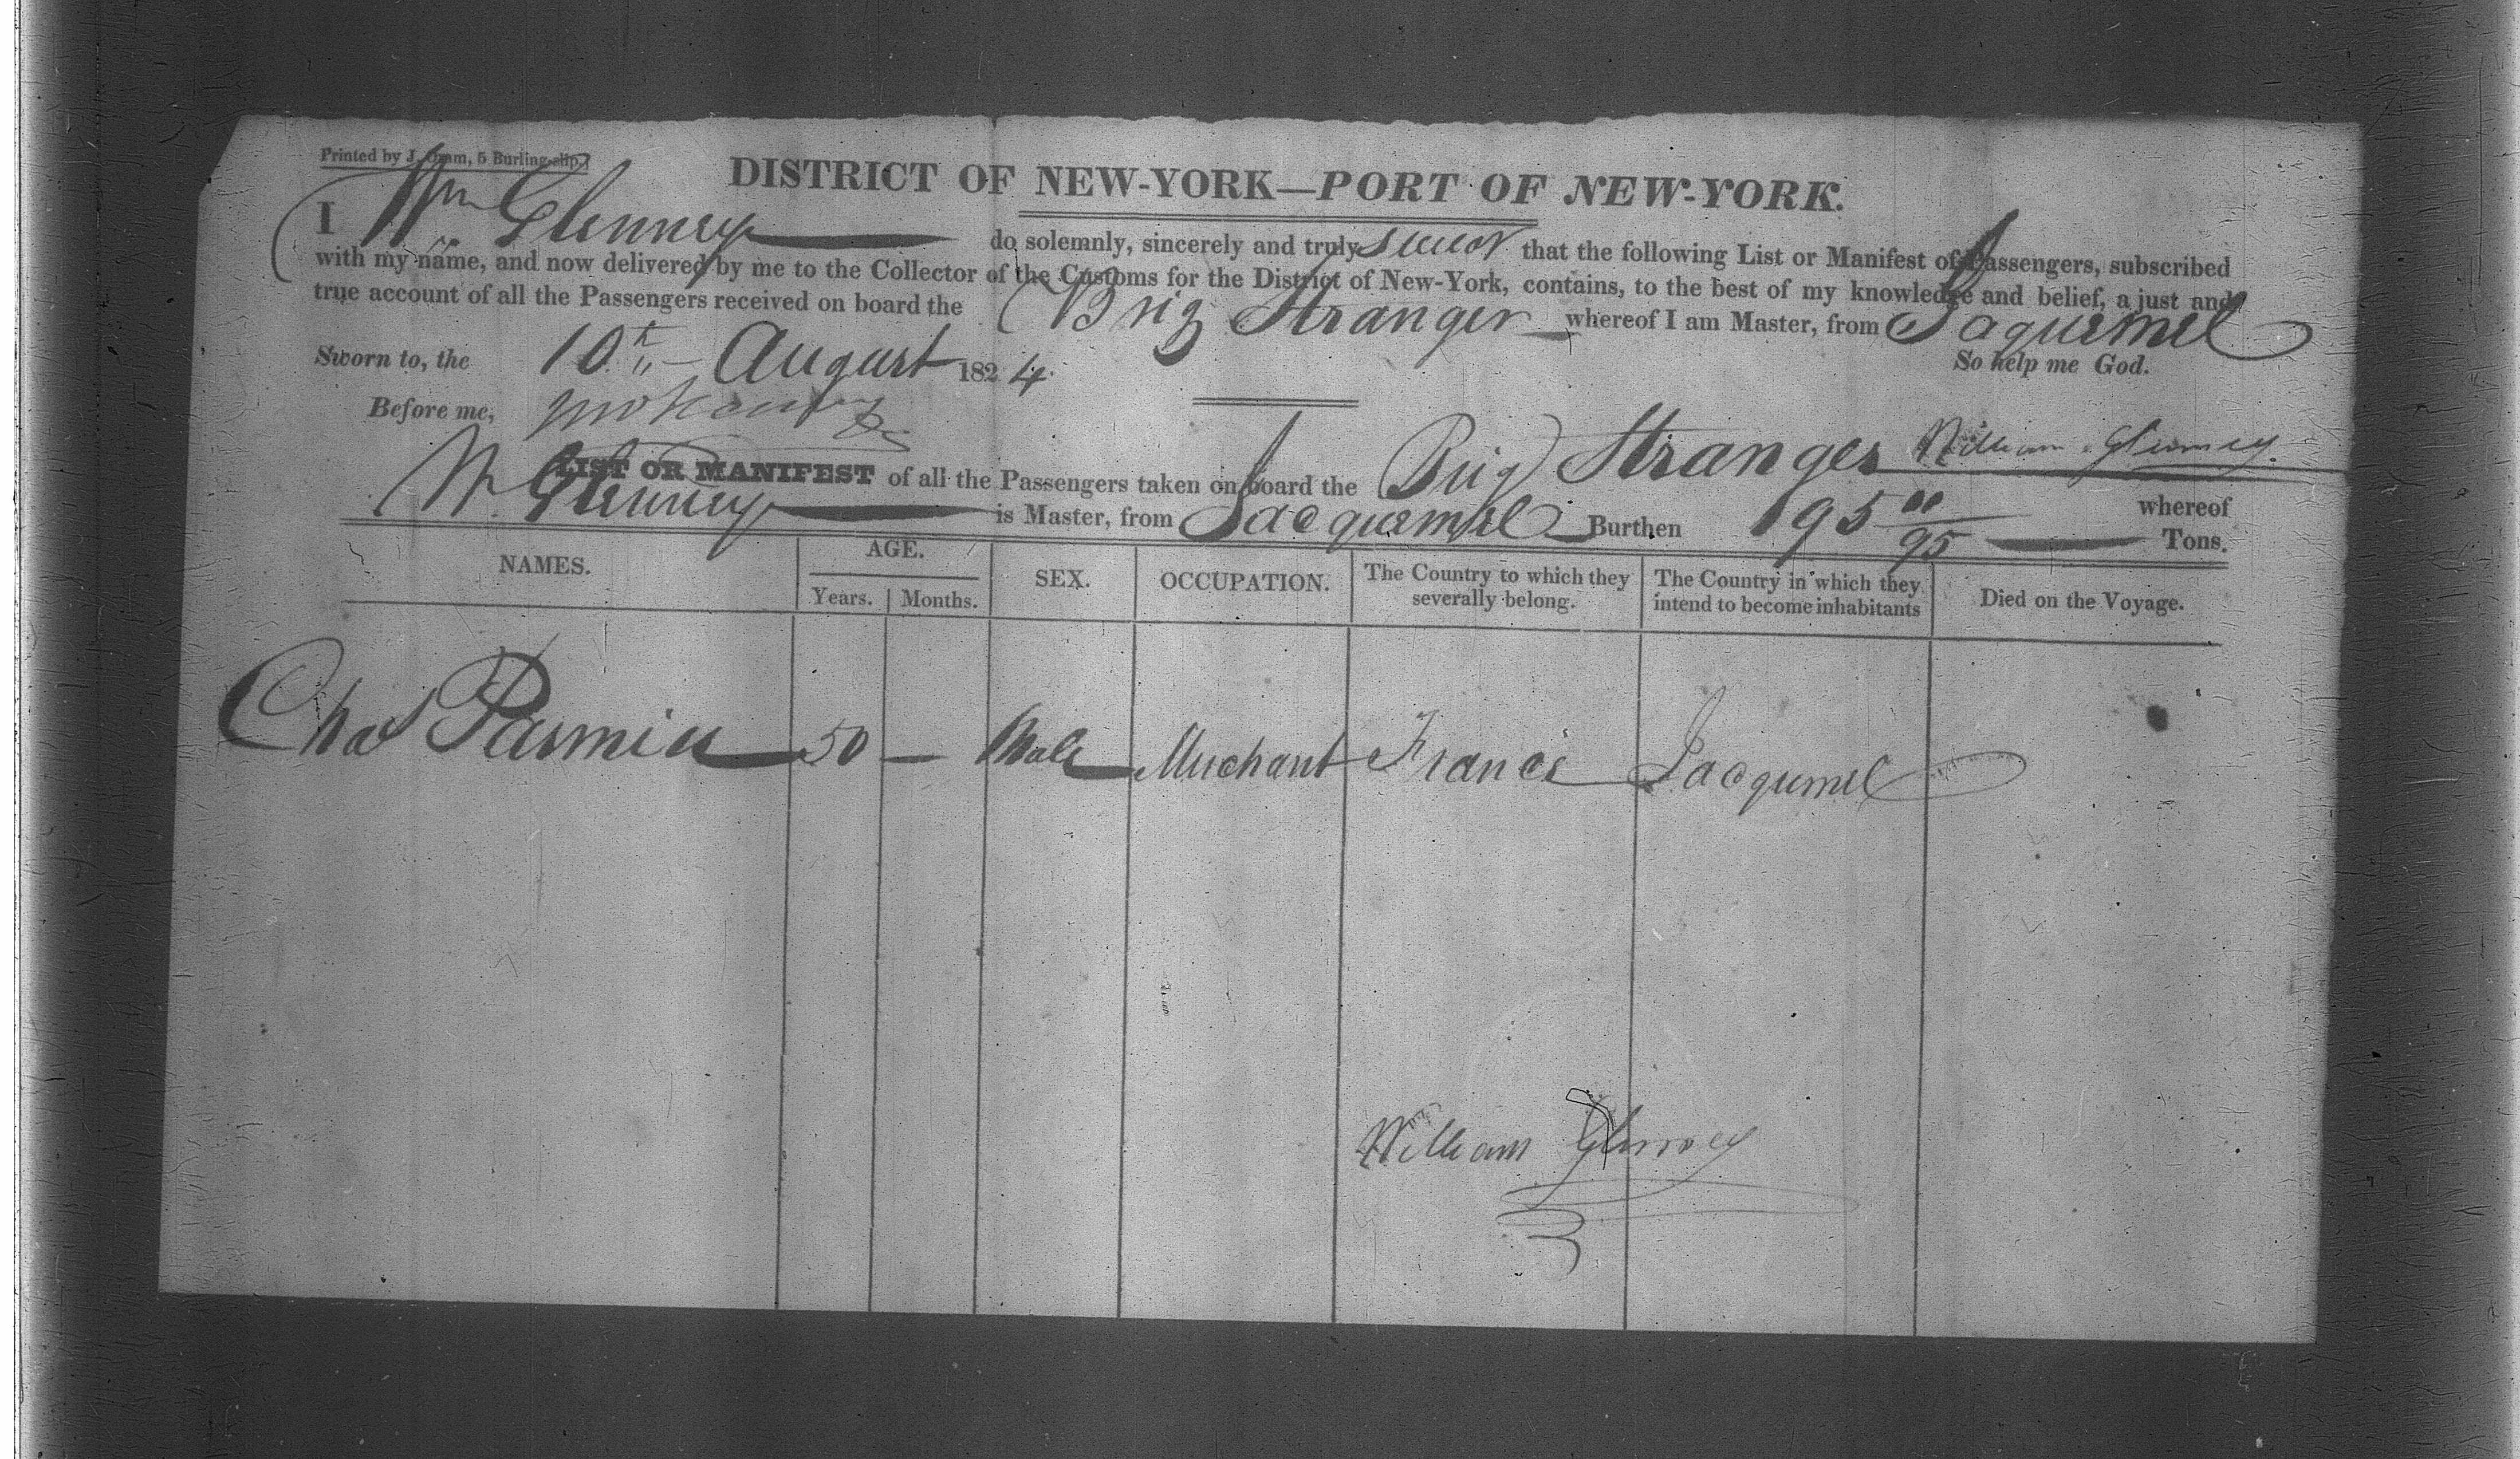 Printed by J. Oram, 5 Burling-slip.
DISTRICT OF NEW-YORK—PORT OF NEW-YORK.
I Wm Glenney do solemnly, sincerely and truly swear that the following List or Manifest of Passengers, subscribed
with my name, and now delivered by me to the Collector of the Customs for the District of New-York, contains, to the best of my knowledge and belief, a just and
true account of all the Passengers received on board the Brig Stranger whereof I am Master, from Jaquemel
Sworn to, the 10th August 1824 So help me God.
Before me,
William Glenney
LIST OR MANIFEST of all the Passengers taken on board the Brig Stranger whereof
W. Glenney is Master, from Jacquemel Burthen 195 /95 Tons.
NAMES. AGE. SEX. OCCUPATION. The Country to which they severally belong. The Country in which they intend to become inhabitants Died on the Voyage.
Years. Months.
Chas Parmin 50 — Male Merchant France Jacqumel
William Glenney